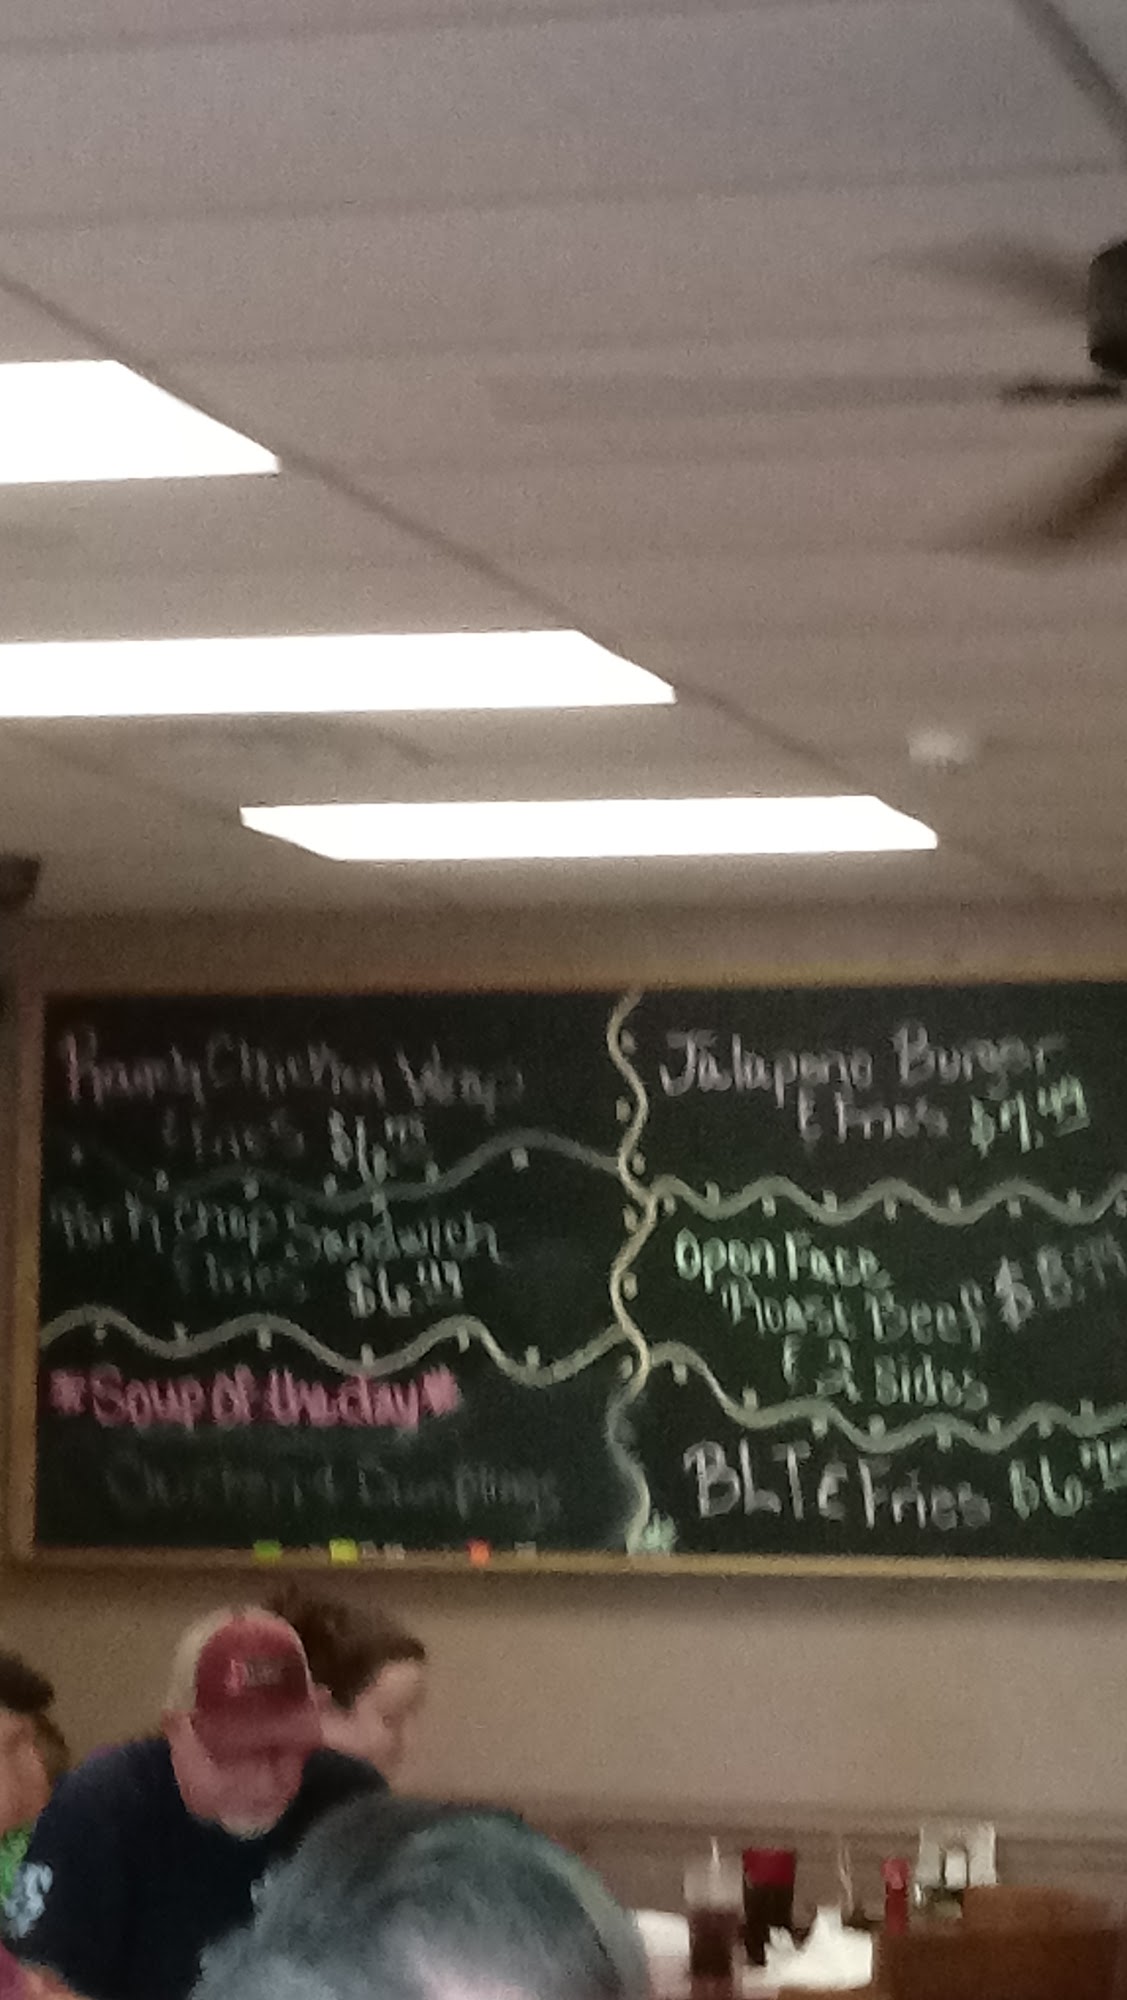 Ranch Chicken Wrap
& Fries $6.95
Pork Chop Sandwich
& Fries $6.99
*Soup of the day*
Chicken & Dumplings
Jalapeno Burger
& Fries $7.49
Open Face
Roast Beef $8.99
& 2 Sides
BLT & Fries $6.75